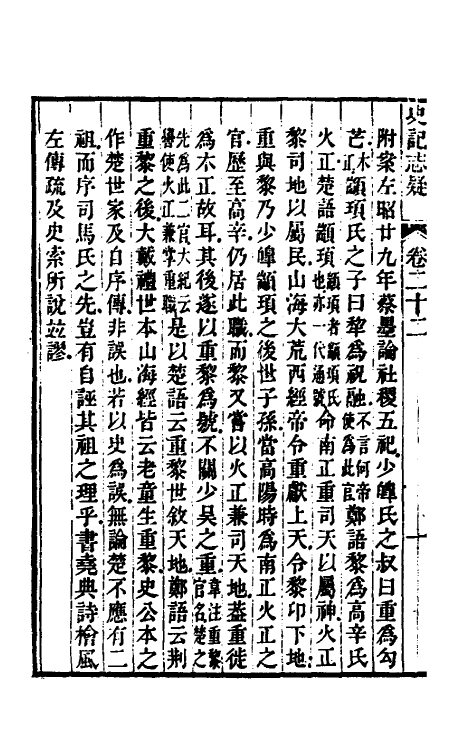 史記志疑 卷二十二 十
附案左昭廿九年蔡墨論社稷五祀少皥氏之叔曰重爲勾
芒木正顓頊氏之子曰犂爲祝融不言何帝使爲此官鄭語黎爲高辛氏
火正楚語顓頊顓頊者顓頊氏也亦一代通號命南正重司天以屬神火正
黎司地以屬民山海大荒西經帝令重獻上天令黎卭下地
重與黎乃少皥顓頊之後世子孫當高陽時爲南正火正之
官歷至高辛仍居此職而黎又嘗以火正兼司天地蓋重徙
爲木正故耳其後遂以重黎爲號不關少昊之重韋注重黎官名楚之
先爲此二官大紀云嚳使火正兼掌重職是以楚語云重黎世敘天地鄭語云荆
重黎之後大戴禮世本山海經皆云老童生重黎史公本之
作楚世家及自序傳非誤也若以史爲誤無論楚不應有二
祖而序司馬氏之先豈有自誣其祖之理乎書堯典詩檜風
左傳疏及史索所說竝謬